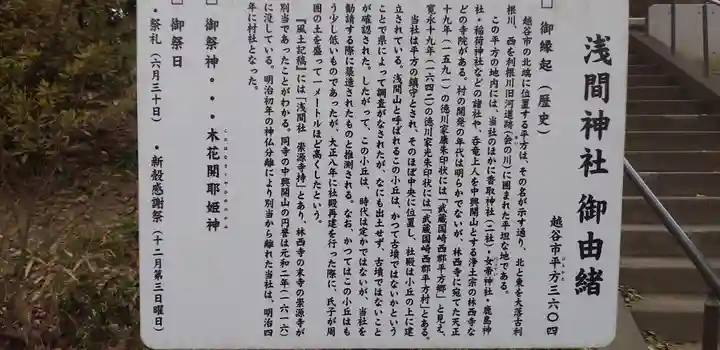 浅間神社 御由緒
越谷市平方三六〇四
□ 御縁起(歴史)
越谷市の北端に位置する平方は、その名が示す通り、北と東を大落古利
根川、西を利根川旧河道跡(会の川)に囲まれた平坦な地である。
この平方の地内には、当社のほかに香取神社(二社)・女帝神社・鹿島神
社・稲荷神社などの諸社や、呑竜上人を中興開山とする浄土宗の林西寺な
どの寺院がある。村の開発の年代は明らかでないが、林西寺に宛てた天正
十九年(一五九一)の徳川家康朱印状には「武蔵国崎西郡平方郷」と見え、
寛永十九年(一六四二)の徳川家光朱印状には「武蔵国崎西郡平方村」とある。
当社は平方の鎮守とされ、そのほぼ中央に位置し、社殿は小丘の上に建
立されている。浅間山と呼ばれるこの小丘は、かつて古墳ではないかという
ことで県によって調査がなされたが、なにも出土せず、古墳ではないこと
が確認された。したがって、この小丘は、時代は定かではないが、当社を
勧請する際に築造されたものと推測される。なお、かつてはこの小丘はも
う少し低いものであったが、大正八年に社殿再建を行った際に、氏子が周
囲の土を盛って一メートルほど高くしたという。
『風土記稿』には「浅間社 崇源寺持」とあり、林西寺の末寺の崇源寺が
別当であったことがわかる。同寺の中興開山の円誉は元和二年(一六一六)
に没している。明治初年の神仏分離により別当から離れた当社は、明治四
年に村社となった。
□ 御祭神・・・木花開耶姫神
□ 御祭日
・祭礼(六月三十日) ・新穀感謝祭(十二月第三日曜日)